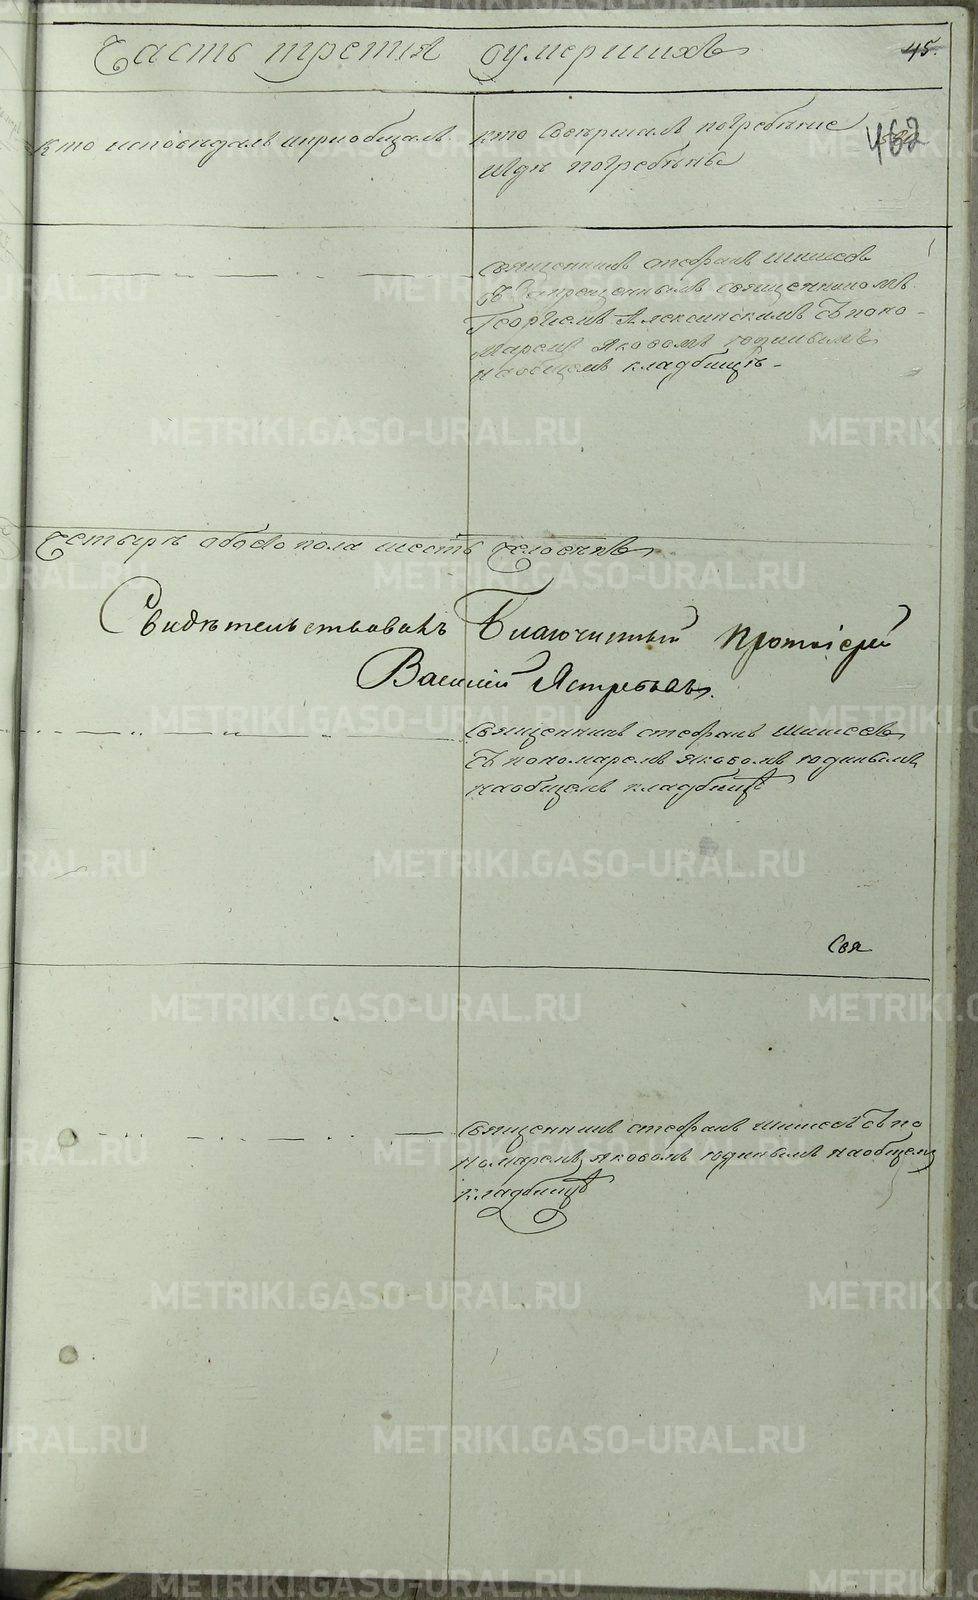 Часть третия оумершихъ 45.
Кто исповедалъ иприобщалъ
Кто Совершалъ погребѣние
Игде погребѣны
462
Священникъ стефанъ шишевъ
священникомъ
Георгиемъ Алексинскимъ Съпоно-
маремъ Яковомъ юдинымъ
наобщемъ кладбищѣ.
Четыре обоего пола шесть человекъ
Свидѣтельствовалъ Благочинный Протоіерей
Василий Ястребовъ.
Священникъ стефанъ шишевъ
Съпономаремъ яковомъ юдинымъ
наобщемъ кладбищѣ
Свя
Священникъ стефанъ шишевъ Съпо
номаремъ яковомъ юдинымъ наобщемъ
кладбищѣ
METRIKI.GASO-URAL.RU